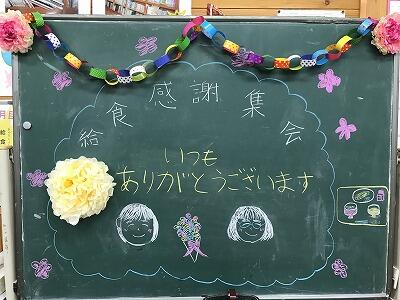 給食感謝集会
いつも
ありがとうございます